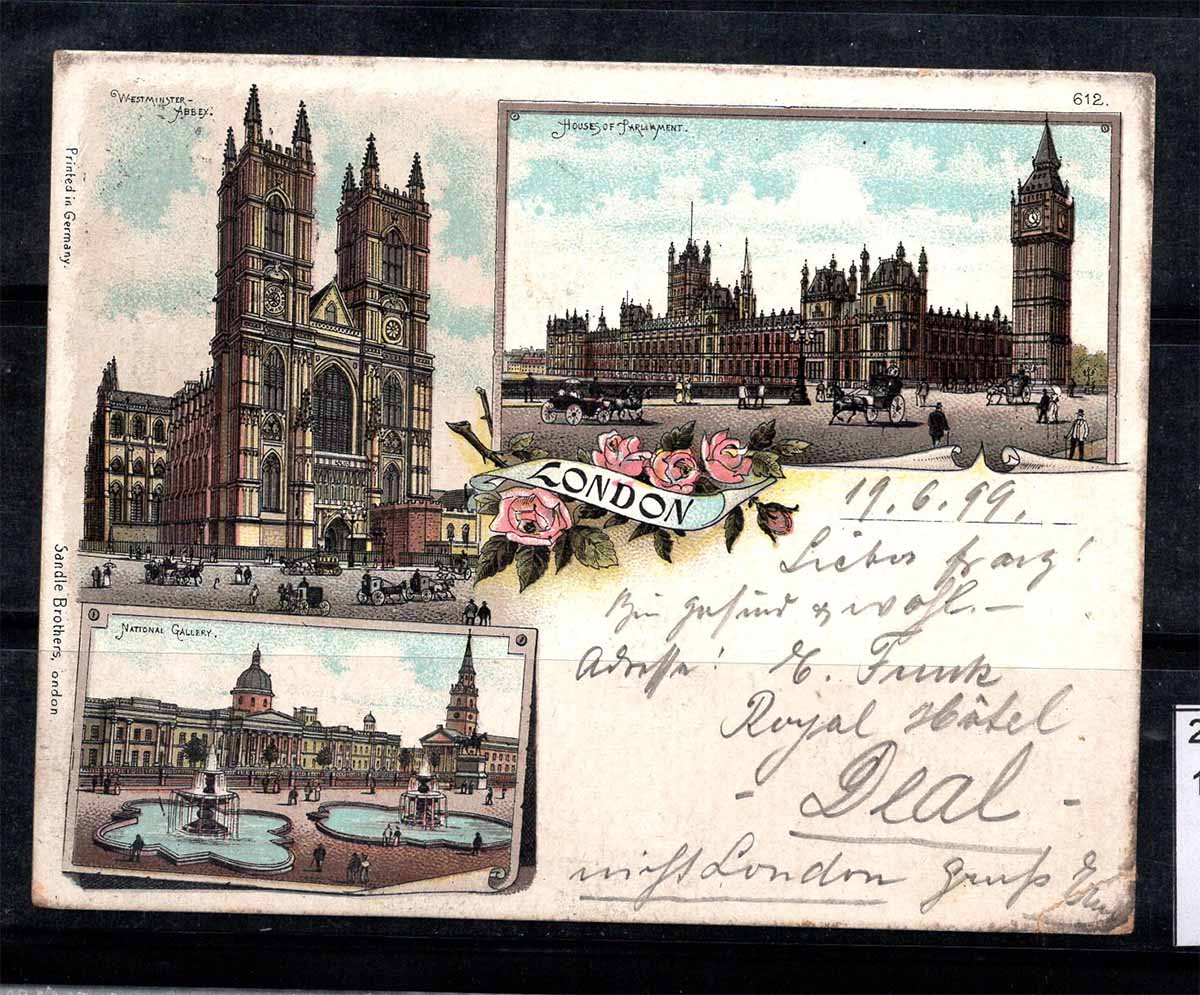 WESTMINSTER-
ABBEY.
612.
HOUSES OF PARLIAMENT.
Printed in Germany.
LONDON
19.6.99.
Liebes Franz!
Bin gesund & wohl.-
Adresse! E. Funk
Royal Hôtel
- Deal -
nicht London Gruß E
Sandle Brothers, ondon
NATIONAL GALLERY.
2
1